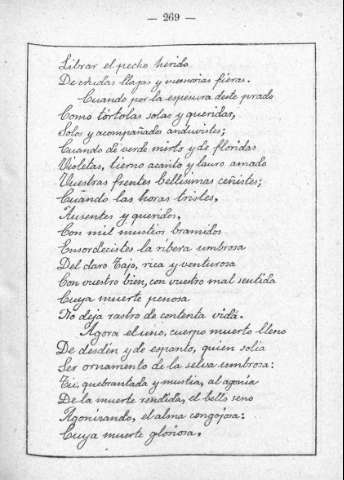 — 269 —
Librar el pecho herido
De crudas llagas y memorias fieras.
Cuando por la espesura deste prado
Como tórtolas solas y queridas,
Solos y acompañados anduvistes;
Cuando de verde mirto y de floridas
Violetas, tierno acanto y lauro amado
Vuestras frentes bellísimas ceñistes;
Cuando las horas tristes,
Ausentes y queridos,
Con mil mustios bramidos
Ensordecistes la ribera umbrosa
Del claro Tajo, rica y venturosa
Con vuestro bien, con vuestro mal sentida
Cuya muerte penosa
No deja rastro de contenta vida.
Agora el uno, cuerpo muerto lleno
De desdén y de espanto, quien solía
Ser ornamento de la selva umbrosa:
Tú, quebrantada y mustia, al agonía
De la muerte rendida, el bello seno
Agonizando, el alma congojosa:
Cuya muerte gloriosa,